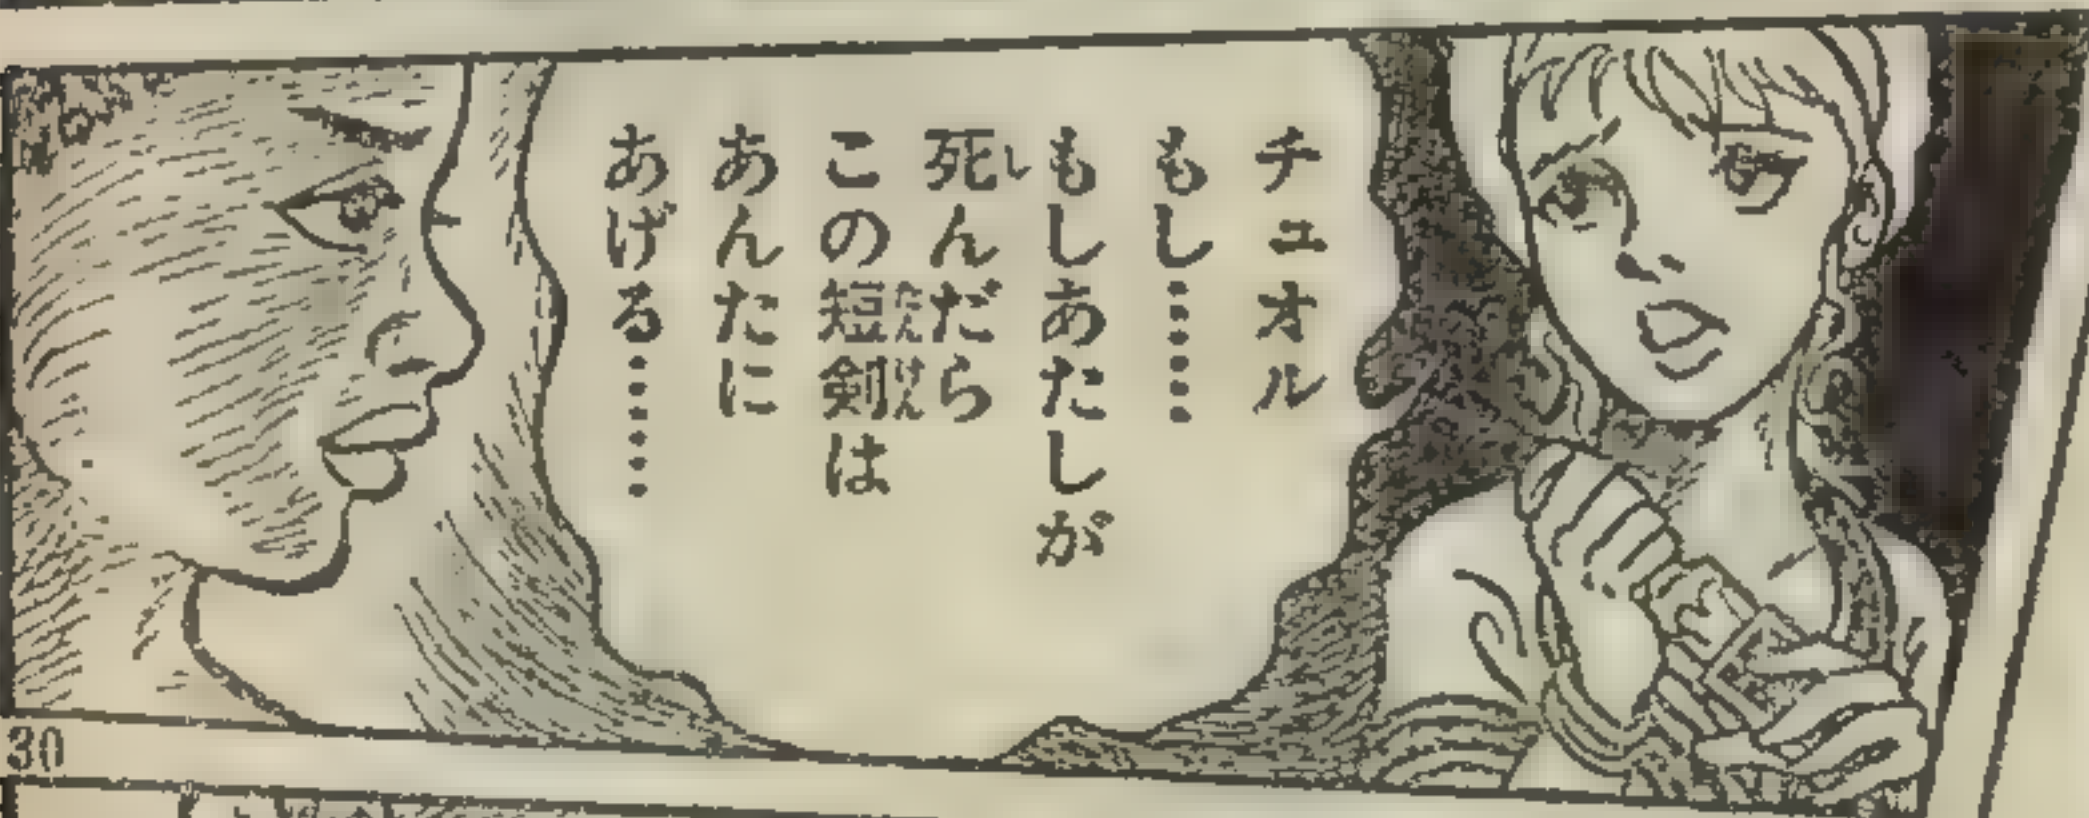 チュオル
もし……
もしあたしが
死んだら
この短剣は
あんたに
あげる……
30